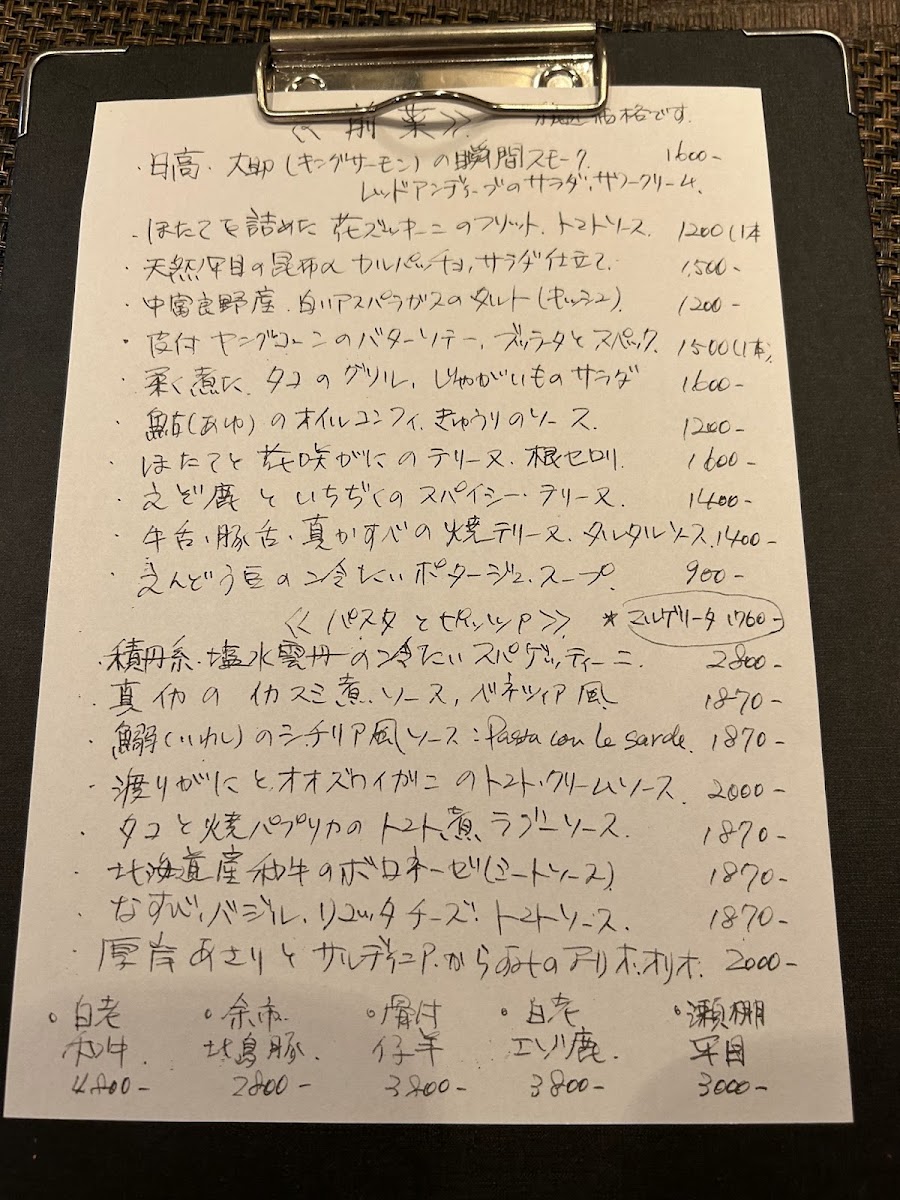 ≪前菜≫ 税込価格です.
・日高・大助(キングサーモン)の瞬間スモーク. 1600-
レッドアンディーブのサラダ、サワークリーム.
・ほたてを詰めた花ズッキーニのフリット.トマトソース. 1200(1本
・天然平目の昆布〆カルパッチョ,サラダ仕立て. 1500-
・中富良野産.白いアスパラガスのタルト(キッシュ) 1200-
・皮付ヤングコーンのバターソテー,ブッラータとスペック. 1500(1本)
・柔く煮た、タコのグリル,じゃがいものサラダ 1600-
・鮎(あゆ)のオイルコンフィ.きゅうりのソース. 1200-
・ほたてと花咲がにのテリーヌ.根セロリ. 1600-
・えぞ鹿といちぢくのスパイシー・テリーヌ 1400-
・牛舌、豚舌、真かすべの焼テリーヌ.タルタルソース. 1400-
・えんどう豆の冷たいポタージュ.スープ. 900-
≪パスタとピッツァ≫ *マルゲリータ 1760-
・積丹系.塩水雲丹の冷たいスパゲッティーニ. 2800-
・真イカのイカスミ煮.ソース,ベネツィア風 1870-
・鰯(いわし)のシチリア風ソース:Pasta con le sarde. 1870-
・渡りがにとオオズワイガニのトマト・クリームソース. 2000-
・タコと焼パプリカのトマト煮ラグーソース. 1870-
・北海道産和牛のボロネーゼ(ミートソース) 1870-
・なすび,バジル,リコッタチーズ.トマトソース. 1870-
・厚岸あさりとサルディニアからすみのアーリオ.オリオ. 2000-
・白老 ・余市 ・骨付 ・白老 ・瀬棚
和牛. 北島豚. 仔羊 エゾ鹿. 平目
4800- 2800- 3800- 3800- 3000-